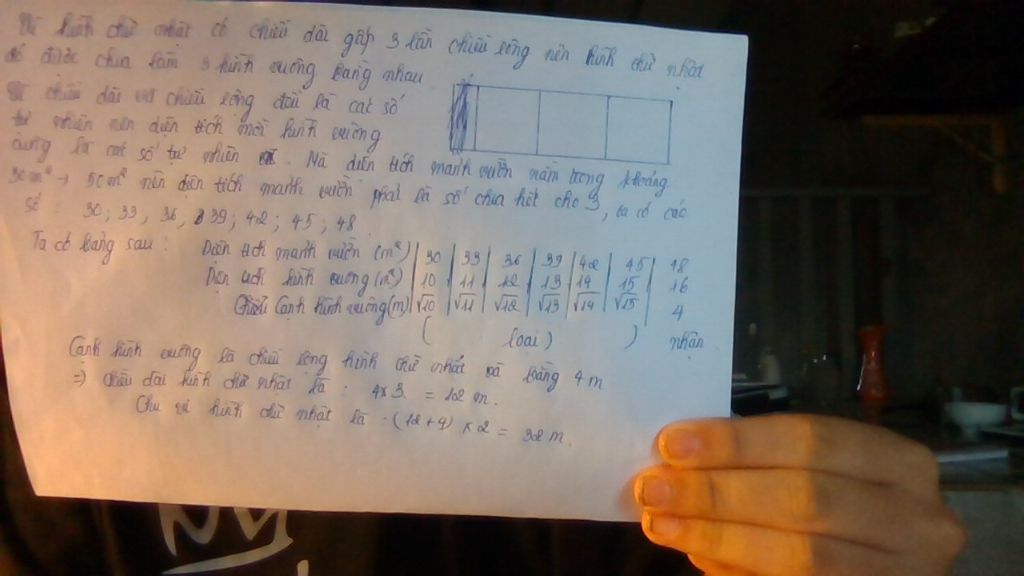 Vì hình chữ nhật có chiều dài gấp 3 lần chiều rộng nên hình chữ nhật
đó được chia làm 3 hình vuông bằng nhau
Vì chiều dài và chiều rộng đều là các số
tự nhiên nên diện tích mỗi hình vuông
cũng là các số tự nhiên. Mà diện tích mảnh vườn nằm trong khoảng
30m² → 50m² nên diện tích mảnh vườn phải là số chia hết cho 3, ta có các
số : 30; 33, 36, 39; 42; 45; 48
Ta có bảng sau : Diện tích mảnh vườn (m²) | 30 | 33 | 36 | 39 | 42 | 45 | 48
Diện tích hình vuông (m²) | 10 | 11 | 12 | 13 | 14 | 15 | 16
Cạnh hình vuông (m) | √10 | √11 | √12 | √13 | √14 | √15 | 4
( loại ) ) nhận
Cạnh hình vuông là chiều rộng hình chữ nhật và bằng 4 m
=> Chiều dài hình chữ nhật là : 4 x 3 = 12 m.
Chu vi hình chữ nhật là : (12 + 4) x 2 = 32 m.